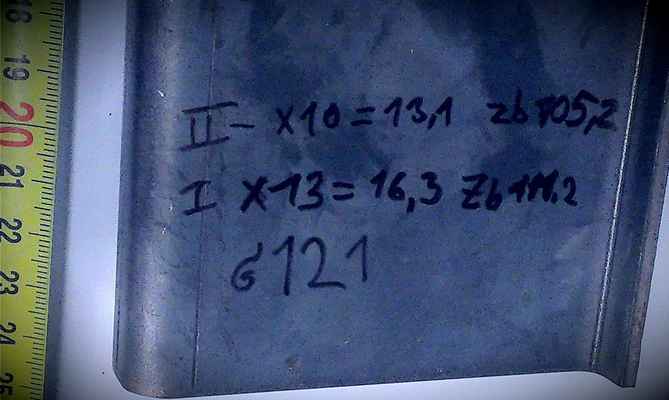 18
19
20
21
22
23
24
25
II - x10 = 13,1 zb 105,2
I x13 = 16,3 Zb
6121